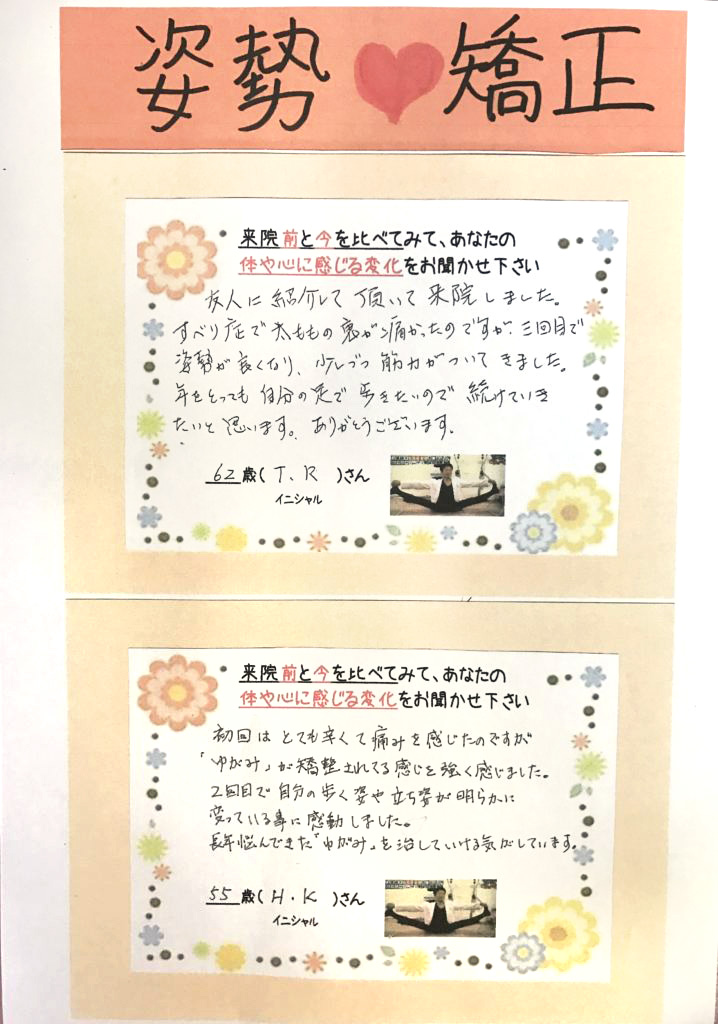 姿勢♥矯正
来院前と今を比べてみて、あなたの
体や心に感じる変化をお聞かせ下さい
友人に紹介して頂いて来院しました。
すべり症で太ももの裏が痛かったのですが、三回目で
姿勢が良くなり、少しづつ筋力がついてきました。
年をとっても自分の足で歩きたいので続けていき
たいと思います。ありがとうございます。
62歳(T.R)さん
イニシャル
来院前と今を比べてみて、あなたの
体や心に感じる変化をお聞かせ下さい
初回はとても辛くて痛みを感じたのですが
「ゆがみ」が矯整されてる感じを強く感じました。
2回目で自分の歩く姿や立ち姿が明らかに
変っている事に感動しました。
長年悩んできた「ゆがみ」を治していける気がしています。
55歳(H.K)さん
イニシャル